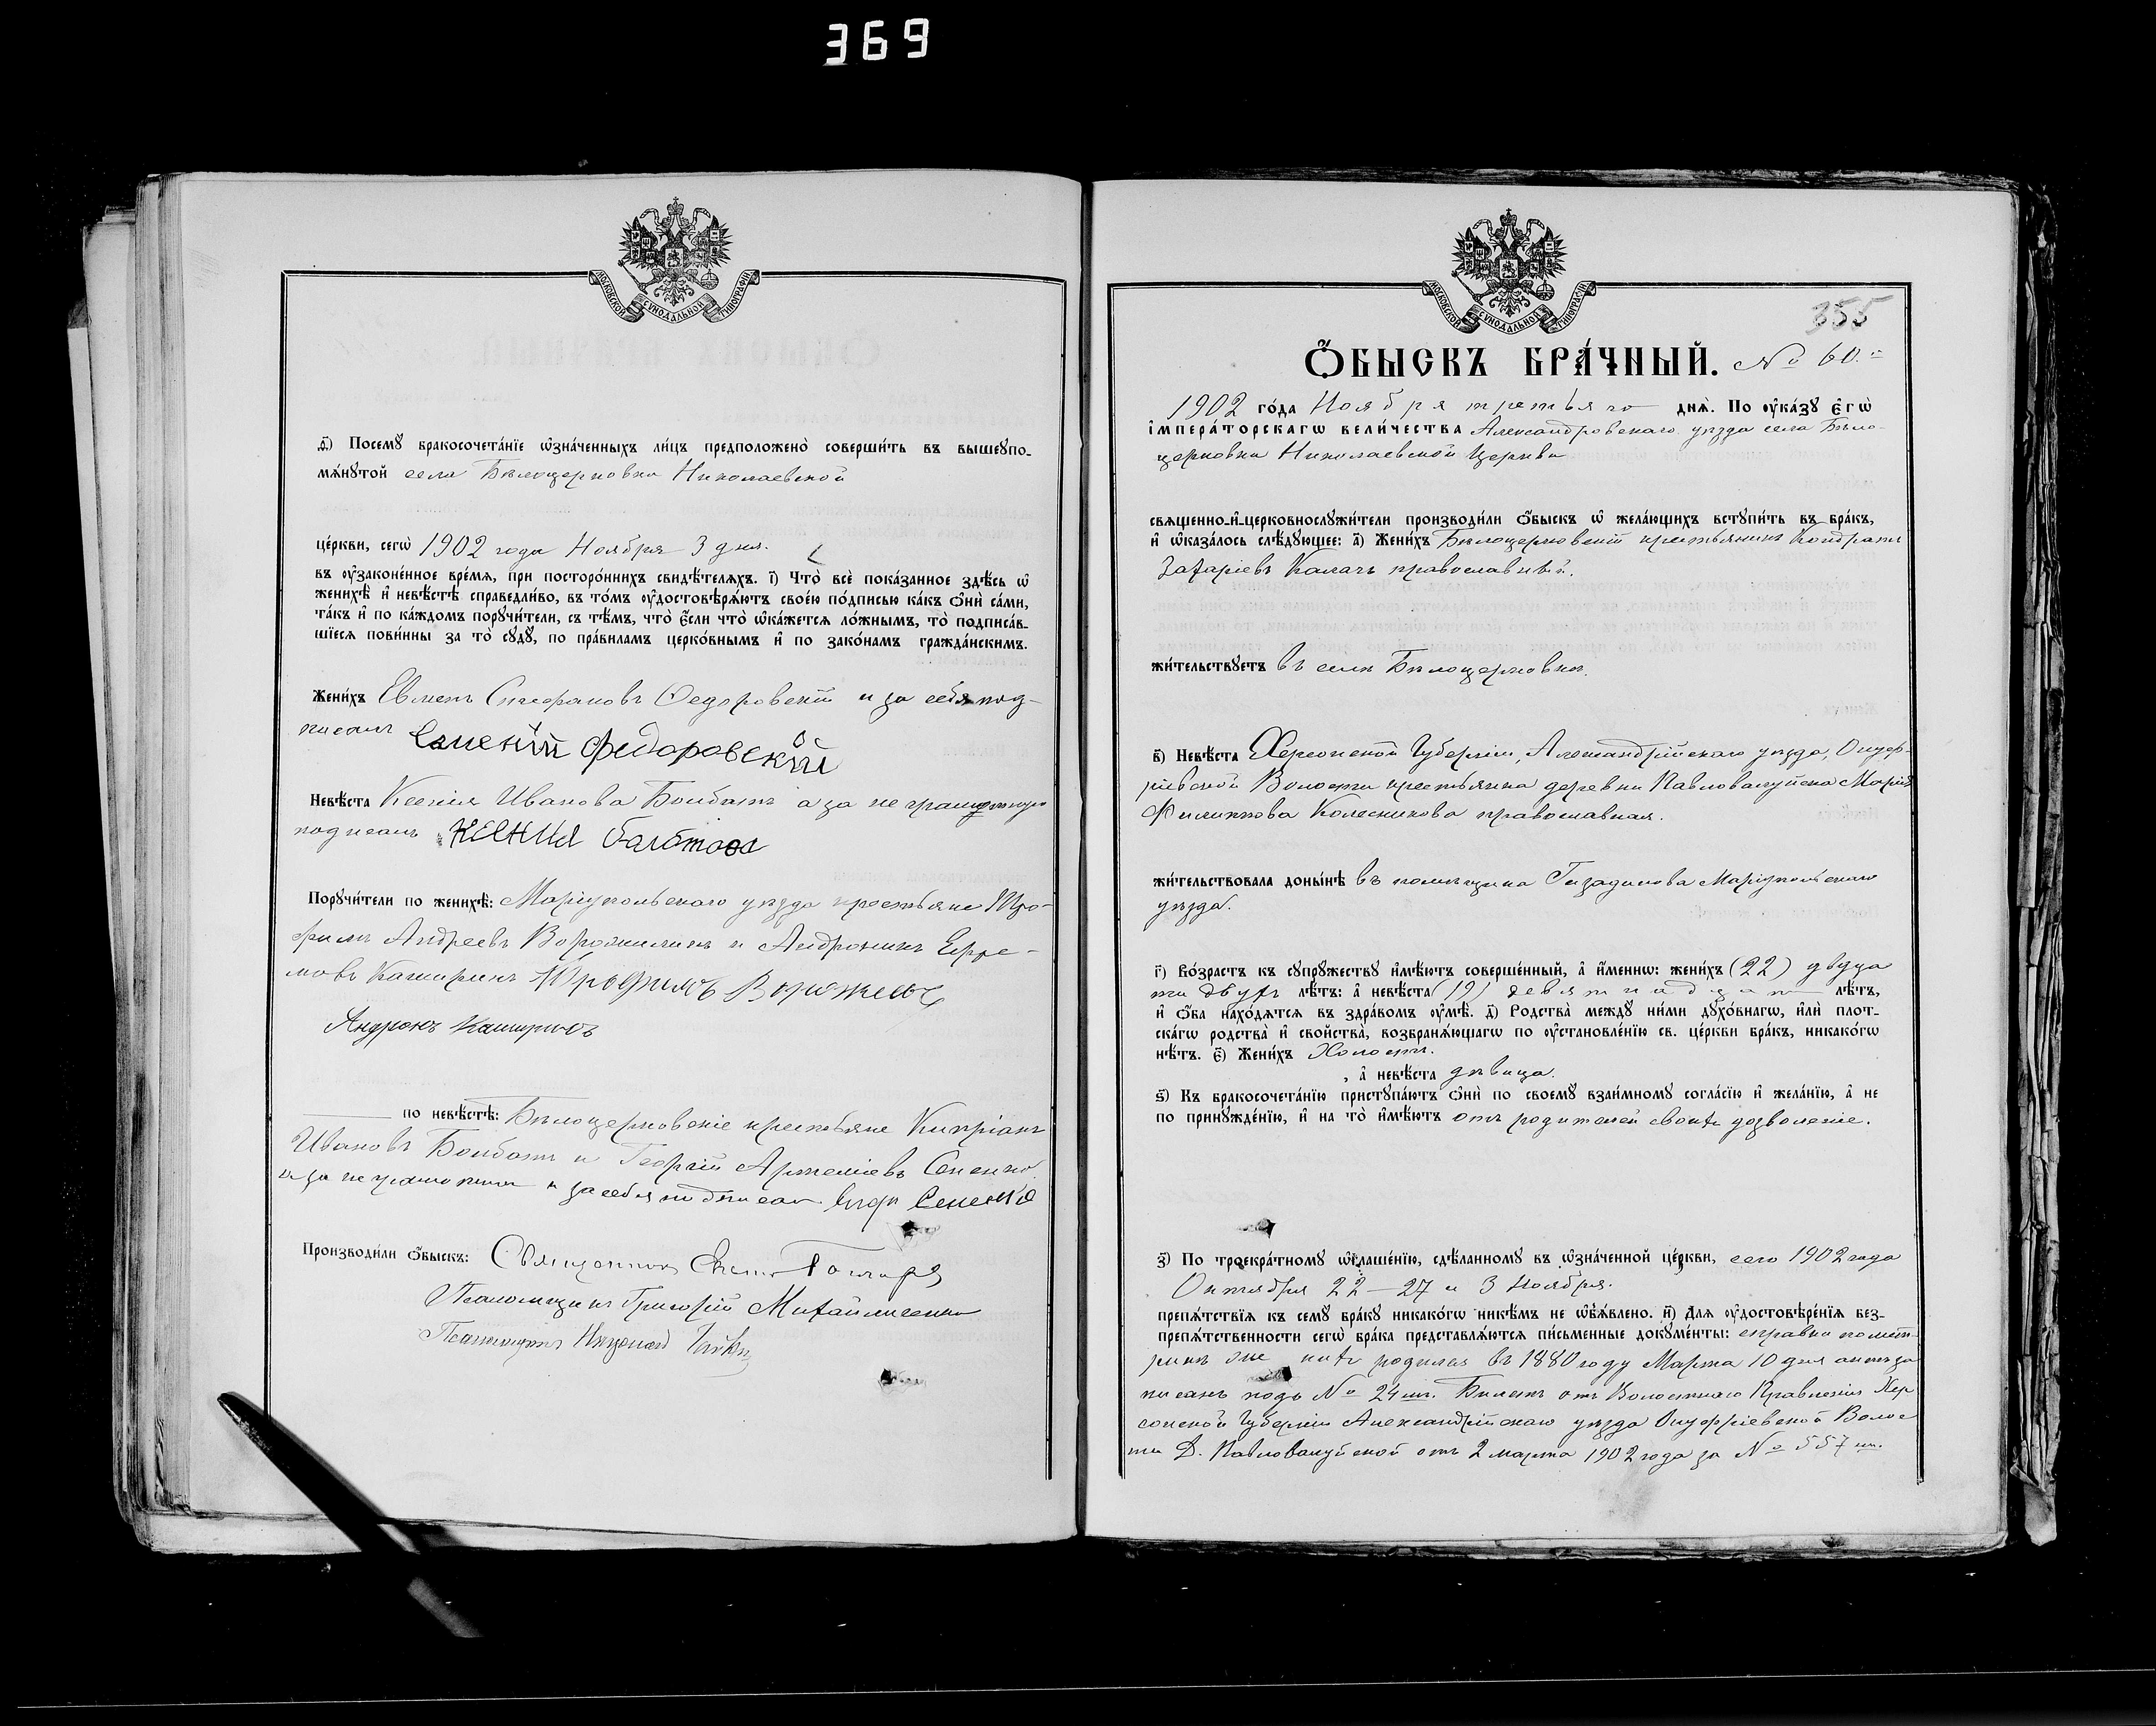 369
МОСКОВСКОЙ СУНОДАЛЬНОЙ ТИПОГРАФІИ
д҃і) Посемꙋ̀ бракосочета́нїе ѡ҆зна́ченныхъ ли́цъ предположено̀ соверши́ть въ вышеꙋпо-
мѧ́нꙋтой села Бѣлоцерковки Николаевской
це́ркви, сегѡ̀ 1902 года Ноября 3 дня.
въ ᲂу҆зако́ненное вре́мѧ, при посторо́ннихъ свидѣ́телѧхъ. і҃) Что̀ всѐ пока́занное здѣ́сь ѡ҆
женихѣ̀ и҆ невѣ́стѣ справедли́во, въ то́мъ ᲂу҆достовѣрѧ́ютъ свое́ю по́дписью ка́къ ѻ҆нѝ са́ми,
та́къ и҆ по ка́ждомъ порꙋчи́тели, съ тѣ́мъ, что̀ є҆́сли что̀ ѡ҆ка́жетсѧ ло́жнымъ, то̀ подписа́в-
шїесѧ пови́нны за то̀ сꙋдꙋ̀, по пра́виламъ церко́внымъ и҆ по зако́намъ гражда́нскимъ.
Жени́хъ Евмен Стефановъ Федоровскій и за себя под-
писался Евменій Федоровскій
Невѣ́ста Ксенія Иванова Бомбатъ а за неграмотную
подписалъ
Порꙋчи́тели по женихѣ̀: Маріупольскаго уѣзда крестьяне Тро-
фимъ Андреевъ и Андроникъ Ефре-
мовъ Каширинъ Трофимъ
Андронъ
по невѣ́стѣ: Бѣлоцерковскіе крестьяне Кипріанъ
Ивановъ Бомбатъ и Георгій Артеміевъ Сененко
и за неграмотнаго и за себя подписал Сененко
Производи́ли ѻ҆́быскъ: Священникъ
Псаломщикъ Григорій Михайличенко
Псаломщикъ
МОСКОВСКОЙ СУНОДАЛЬНОЙ ТИПОГРАФІИ
355
Ѻ҆́БЫСКЪ БРА́ЧНЫЙ. № 60.й
1902 го́да Ноября третьяго днѧ̀. По ᲂу҆ка́зꙋ є҆гѡ̀
і҆мпера́торскагѡ вели́чества Александровскаго уѣзда села Бѣло-
церковки Николаевской Церкви
свѧщенно-и҆-церковнослꙋжи́тели производи́ли ѻ҆́быскъ ѡ҆ жела́ющихъ встꙋпи́ть въ бра́къ,
и҆ ѡ҆каза́лось слѣ́дꙋющее: а҃) Жени́хъ Бѣлоцерковскій крестьянинъ Кондратъ
Захаріевъ Калачъ православный.
жи́тельствꙋетъ въ селѣ Бѣлоцерковкѣ.
в҃) Невѣ́ста Херсонской Губерніи, Александрійскаго уѣзда, Онуф-
ріевской Волости крестьянка деревни Марія
Филиппова Колесникова православная.
жи́тельствовала доны́нѣ въ помѣщика Маріупольскаго
уѣзда.
г҃) Во́зрастъ къ сꙋпрꙋ́жествꙋ и҆мѣ́ютъ соверше́нный, а҆ и҆́меннѡ: жени́хъ (22) двадца
ти двухъ лѣ́тъ: а҆ невѣ́ста (19) девятнадцати лѣ́тъ,
и҆ ѻ҆́ба нахо́дѧтсѧ въ здра́вомъ ᲂу҆мѣ̀. д҃) Родства̀ междꙋ̀ ни́ми дꙋхо́внагѡ, и҆лѝ плот-
ска́гѡ родства̀ и҆ сво́йства, возбранѧ́ющагѡ по ᲂу҆становле́нїю св. це́ркви бра́къ, никако́гѡ
нѣ́тъ. є҃) Жени́хъ Холостъ.
, а҆ невѣ́ста дѣвица.
ѕ҃) Къ бракосочета́нїю пристꙋпа́ютъ ѻ҆нѝ по своемꙋ̀ взаи́мномꙋ согла́сїю и҆ жела́нїю, а҆ не
по принꙋжде́нїю, и҆ на то̀ и҆мѣ́ютъ отъ родителей своихъ дозволеніе.
з҃) По троекра́тномꙋ ѡ҆глаше́нїю, сдѣ́ланномꙋ въ ѡ҆зна́ченной це́ркви, сего 1902 года
Октября 22 – 27 и 3 Ноября.
препѧ́тствїѧ къ семꙋ̀ бра́кꙋ никако́гѡ никѣ́мъ не ѡ҆б̾ѧ́влено. и҃) Длѧ ᲂу҆достовѣре́нїѧ без-
препѧ́тственности сегѡ̀ бра́ка представлѧ́ютсѧ пи́сьменные докꙋме́нты: справка по мет-
рикѣ родился въ 1880 году Марта 10 дня актъ за
писанъ подъ № 24 Билетъ отъ Волостнаго Правленія Хер
сонской Губерніи Александрійскаго уѣзда Онуфріевской Волос
ти Д. отъ 2 марта 1902 года за № 557